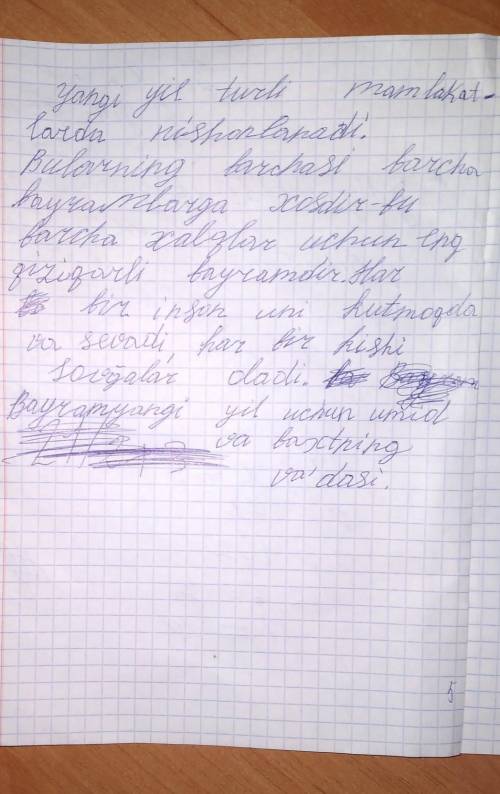 Yangi yil turli mamlakat-
larda nishonlanadi.
Bularning barchasi barcha
bayramlarga xosdir-bu
barcha xalqlar uchun eng
qiziqarli bayramdir. Har
bir inson uni kutmoqda
va sevadi har bir kishi
sovğalar dadi.
Bayramyangi yil uchun umid
va baxtning
va'dasi.
5